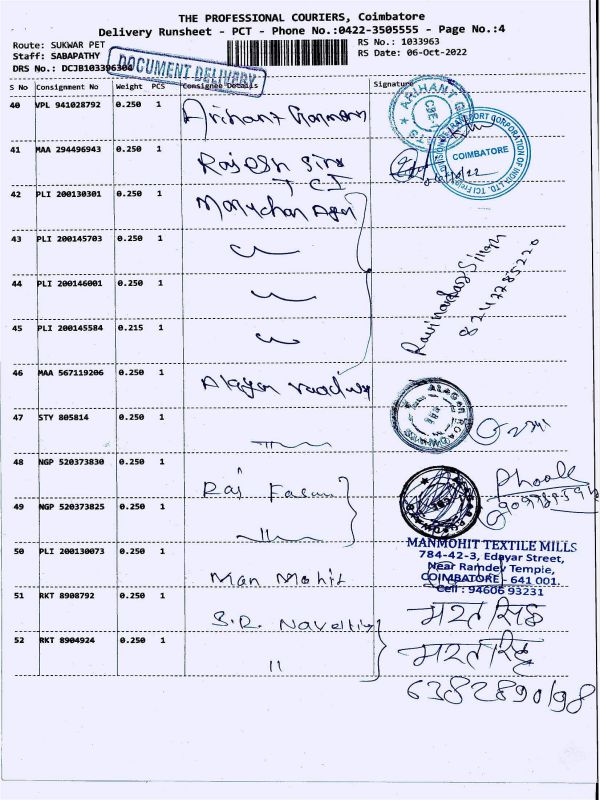 THE PROFESSIONAL COURIERS, Coimbatore
Delivery Runsheet - PCT - Phone No.:0422-3505555 - Page No.:4
Route: SUKWAR PET RS No.: 1033963
Staff: SABAPATHY RS Date: 06-Oct-2022
DRS No.: DCJB103396304
DOCUMENT DELIVERY
S No Consignment No Weight PCS Consignee Details Signature
40 VPL 941028792 0.250 1 Arihant
ARIHANT
CBE
CORPORATION OF INDIA LTD.
COIMBATORE
41 MAA 294496943 0.250 1 Rajesh
TCI
42 PLI 200130301 0.250 1
43 PLI 200145703 0.250 1
44 PLI 200146001 0.250 1
Singh
8247785220
45 PLI 200145584 0.215 1
46 MAA 567119206 0.250 1 Alagar roadways
ALAGAR ROADWAYS
47 STY 805814 0.250 1
48 NGP 520373830 0.250 1 Raj
49 NGP 520373825 0.250 1
50 PLI 200130073 0.250 1 Man Mohit
MANMOHIT TEXTILE MILLS
784-42-3, Edayar Street,
Near Ramdev Temple,
COIMBATORE - 641 001.
Cell : 94606 93231
51 RKT 8908792 0.250 1 S.R. Naveltiy
52 RKT 8904924 0.250 1 11
6382890198